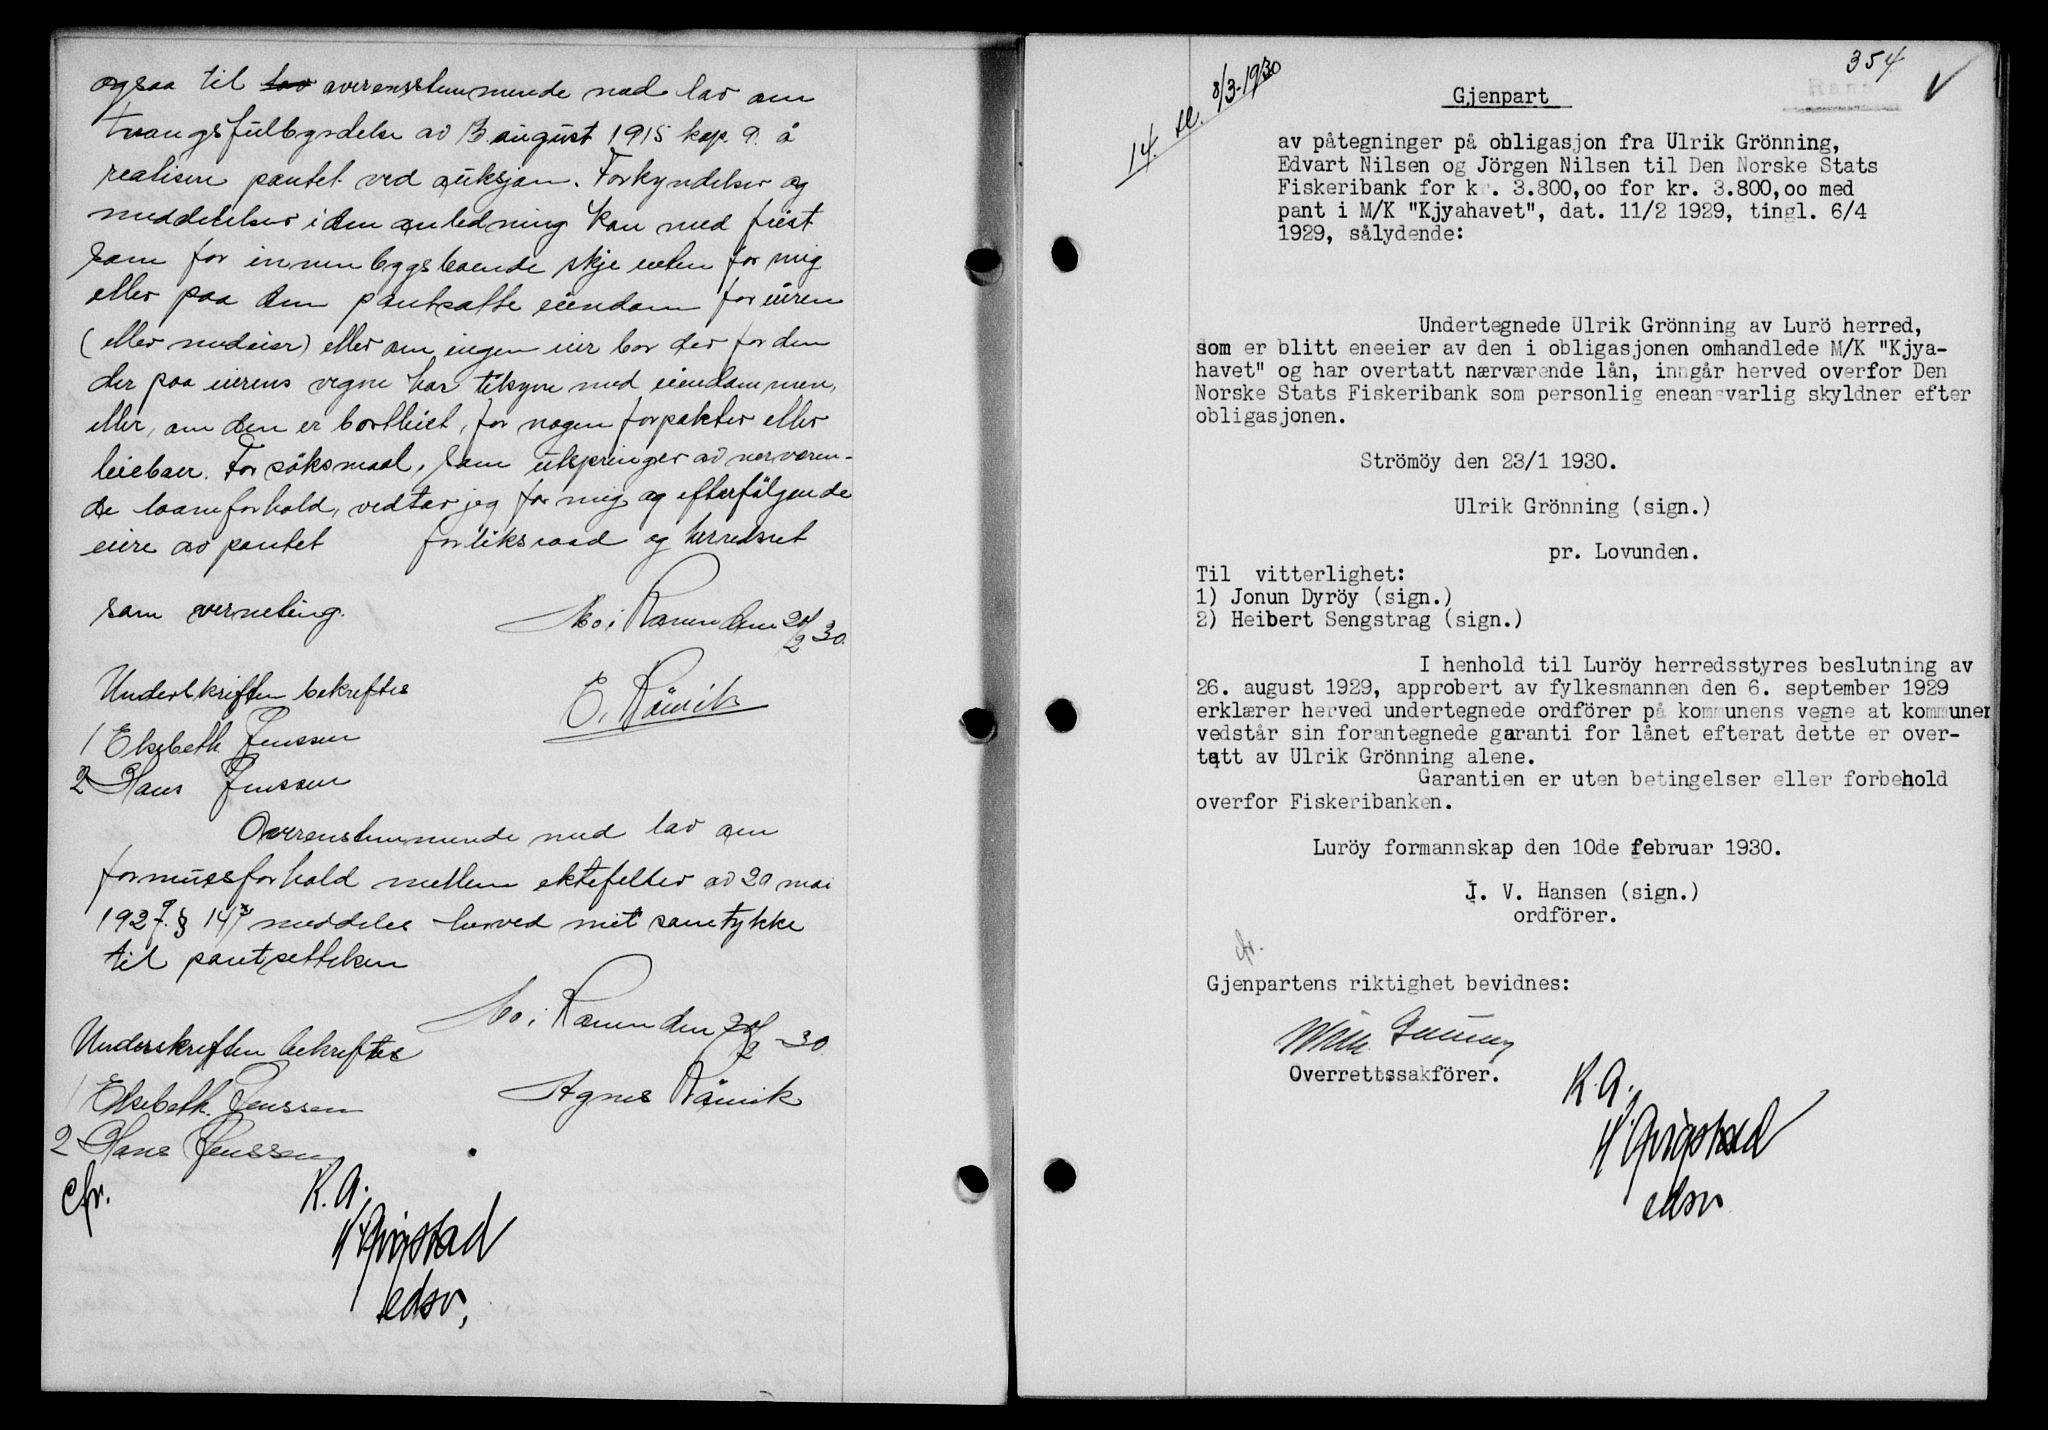 ogsaa til lov overensstemmende med lov om
tvangsfulbyrdelse av 13 august 1915 kap. 9. å
realisere pantet ved auksjon. Forkyndelser og
meddelelser i den anledning kan med frist
som for innenbygsboende skje enten for mig
eller paa den pantsatte eiendom for eieren
(eller medeier) eller om ingen eier bor der for den
der paa eierens vegne har tilsyn med eiendommen,
eller, om den er bortleiet, for nogen forpakter eller
leieboer. For söksmaal, som utspringer av nærværen-
de laaneforhold, vedtar jeg for mig og efterfölgende
eiere av pantet forliksraad og herredsret
som verneting.
Mo i Ranen den 20/2 30.
Underskriften bekreftes
1 Elsebeth Jenssen
2 Hans Jenssen
Overenstemmende med lov om
formuesforhold mellem ektefeller av 20 mai
1927. § 14 meddeles herved mit samtykke
til pantsettelsen
Mo i Ranen den 20/2 - 30.
Underskriften bekreftes
1 Elsebeth. Jenssen
Agnes
2 Hans Jenssen
cfr.
K. A.
edsv,
354
Rana
14. tl. 8/3-1930
Gjenpart
av påtegninger på obligasjon fra Ulrik Grönning,
Edvart Nilsen og Jörgen Nilsen til Den Norske Stats
Fiskeribank for kr. 3.800,oo for kr. 3.800,oo med
pant i M/K "Kjyahavet", dat. 11/2 1929, tingl. 6/4
1929, sålydende:
Undertegnede Ulrik Grönning av Lurö herred,
som er blitt eneeier av den i obligasjonen omhandlede M/K "Kjya-
havet" og har overtatt nærværende lån, inngår herved overfor Den
Norske Stats Fiskeribank som personlig eneansvarlig skyldner efter
obligasjonen.
Strömöy den 23/1 1930.
Ulrik Grönning (sign.)
pr. Lovunden.
Til vitterlighet:
1) Jonun Dyröy (sign.)
2) Heibert Sengstrag (sign.)
I henhold til Luröy herredsstyres beslutning av
26. august 1929, approbert av fylkesmannen den 6. september 1929
erklærer herved undertegnede ordförer på kommunens vegne at kommunen
vedstår sin forantegnede garanti for lånet efterat dette er over-
tatt av Ulrik Grönning alene.
Garantien er uten betingelser eller forbehold
overfor Fiskeribanken.
Luröy formannskap den 10de februar 1930.
I. V. Hansen (sign.)
ordförer.
cfr.
Gjenpartens riktighet bevidnes:
Overrettssakförer.
K. A.
edsv